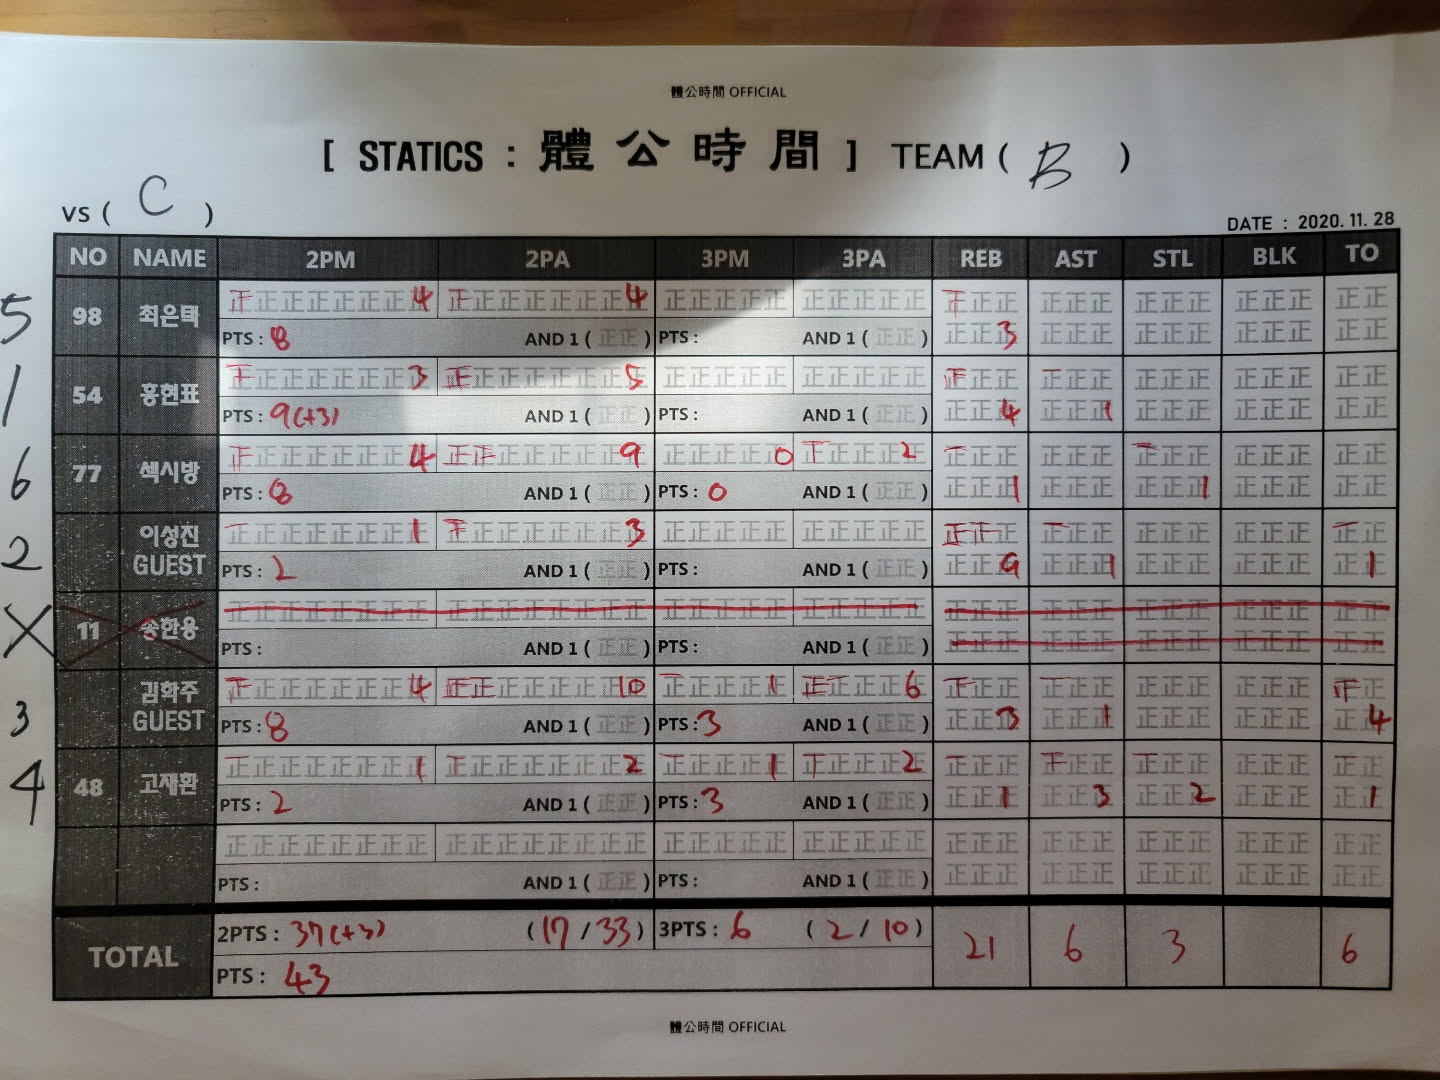 體公時間 OFFICIAL
[ STATICS : 體公時間 ] TEAM ( B )
VS ( C )
DATE : 2020. 11. 28
NO NAME 2PM 2PA 3PM 3PA REB AST STL BLK TO
5 98 최은택 正正正正正正正正 4 正正正正正正正正 4 正正正正正 正正正正正 正正正 正正正 正正正 正正正 正正
PTS : 8 AND 1 ( 正正 ) PTS : AND 1 ( 正正 ) 正正正 3 正正正 正正正 正正正 正正
1 54 홍현표 正正正正正正正正 3 正正正正正正正正 5 正正正正正 正正正正正 正正正 正正正 正正正 正正正 正正
PTS : 9(+3) AND 1 ( 正正 ) PTS : AND 1 ( 正正 ) 正正正 4 正正正 1 正正正 正正正 正正
6 77 섹시방 正正正正正正正正 4 正正正正正正正正 9 正正正正正 0 正正正正正 2 正正正 正正正 正正正 正正正 正正
PTS : 8 AND 1 ( 正正 ) PTS : 0 AND 1 ( 正正 ) 正正正 1 正正正 正正正 1 正正正 正正
2 이성진 正正正正正正正正 1 正正正正正正正正 3 正正正正正 正正正正正 正正正 正正正 正正正 正正正 正正
GUEST PTS : 2 AND 1 ( 正正 ) PTS : AND 1 ( 正正 ) 正正正 9 正正正 1 正正正 正正正 正正 1
X 11 송한용 正正正正正正正正 正正正正正正正正 正正正正正 正正正正正 正正正 正正正 正正正 正正正 正正
PTS : AND 1 ( 正正 ) PTS : AND 1 ( 正正 ) 正正正 正正正 正正正 正正正 正正
3 김학주 正正正正正正正正 4 正正正正正正正正 10 正正正正正 1 正正正正正 6 正正正 正正正 正正正 正正正 正正
GUEST PTS : 8 AND 1 ( 正正 ) PTS : 3 AND 1 ( 正正 ) 正正正 3 正正正 1 正正正 正正正 正正 4
4 48 고재환 正正正正正正正正 1 正正正正正正正正 2 正正正正正 1 正正正正正 2 正正正 正正正 正正正 正正正 正正
PTS : 2 AND 1 ( 正正 ) PTS : 3 AND 1 ( 正正 ) 正正正 1 正正正 3 正正正 2 正正正 正正 1
正正正正正正正正 正正正正正正正正 正正正正正 正正正正正 正正正 正正正 正正正 正正正 正正
PTS : AND 1 ( 正正 ) PTS : AND 1 ( 正正 ) 正正正 正正正 正正正 正正正 正正
TOTAL 2PTS : 37(+3) ( 17 / 33 ) 3PTS : 6 ( 2 / 10 ) 21 6 3 6
PTS : 43
體公時間 OFFICIAL